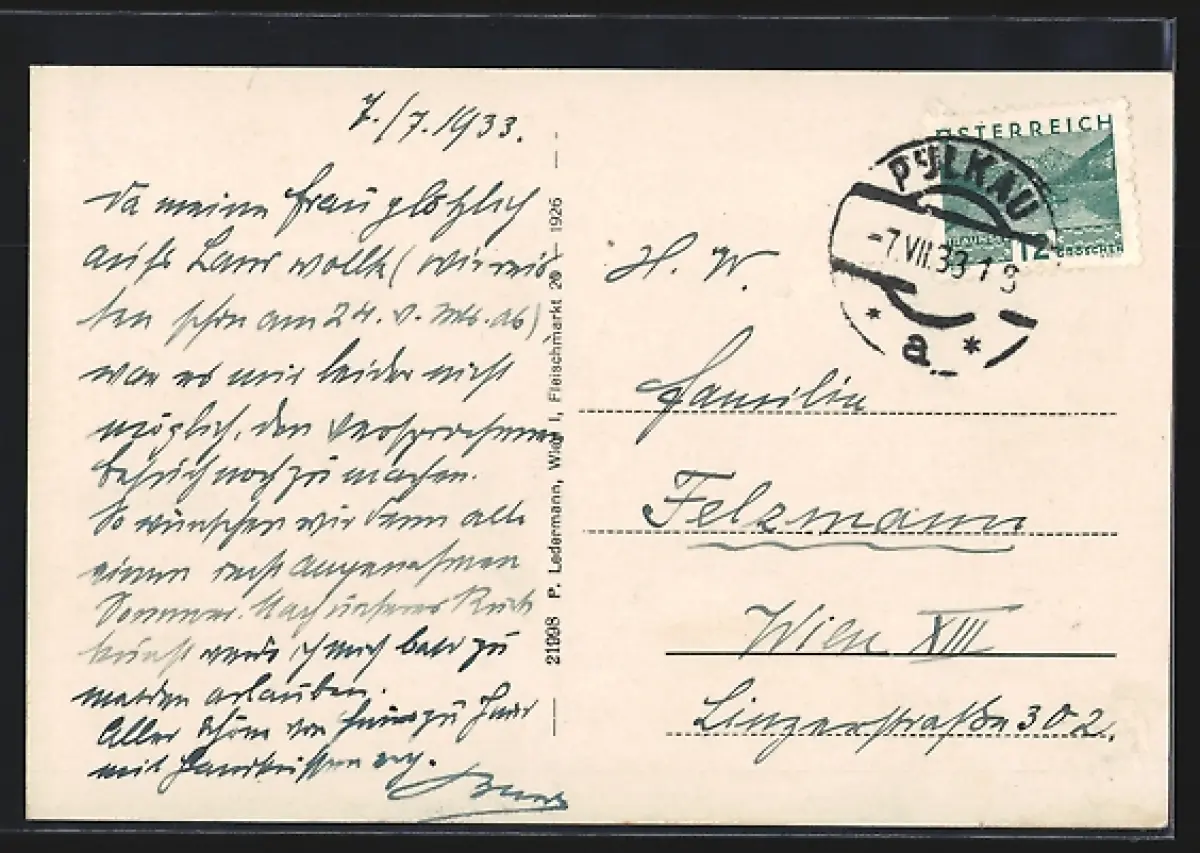 7./7. 1933.
Da meine Frau plötzlich
aufs Land wollte (wir reis
ten schon am 24. v. Mts. ab)
war es mir leider nicht
möglich, den versprochenen
Besuch noch zu machen.
So wünschen wir Ihnen alle
einen recht angenehmen
Sommer. Nach unserer Rück
kunft werde ich mich bald zu
melden erlauben.
Alles Schöne von Haus zu Haus
mit Handküssen
21998 P. Ledermann, Wien I, Fleischmarkt 20 — 1926
ÖSTERREICH
12 GROSCHEN
PULKAU
-7.VII.33 18
* a *
H. W.
Familie
Felzmann
Wien XIII
Linzerstraße 302.